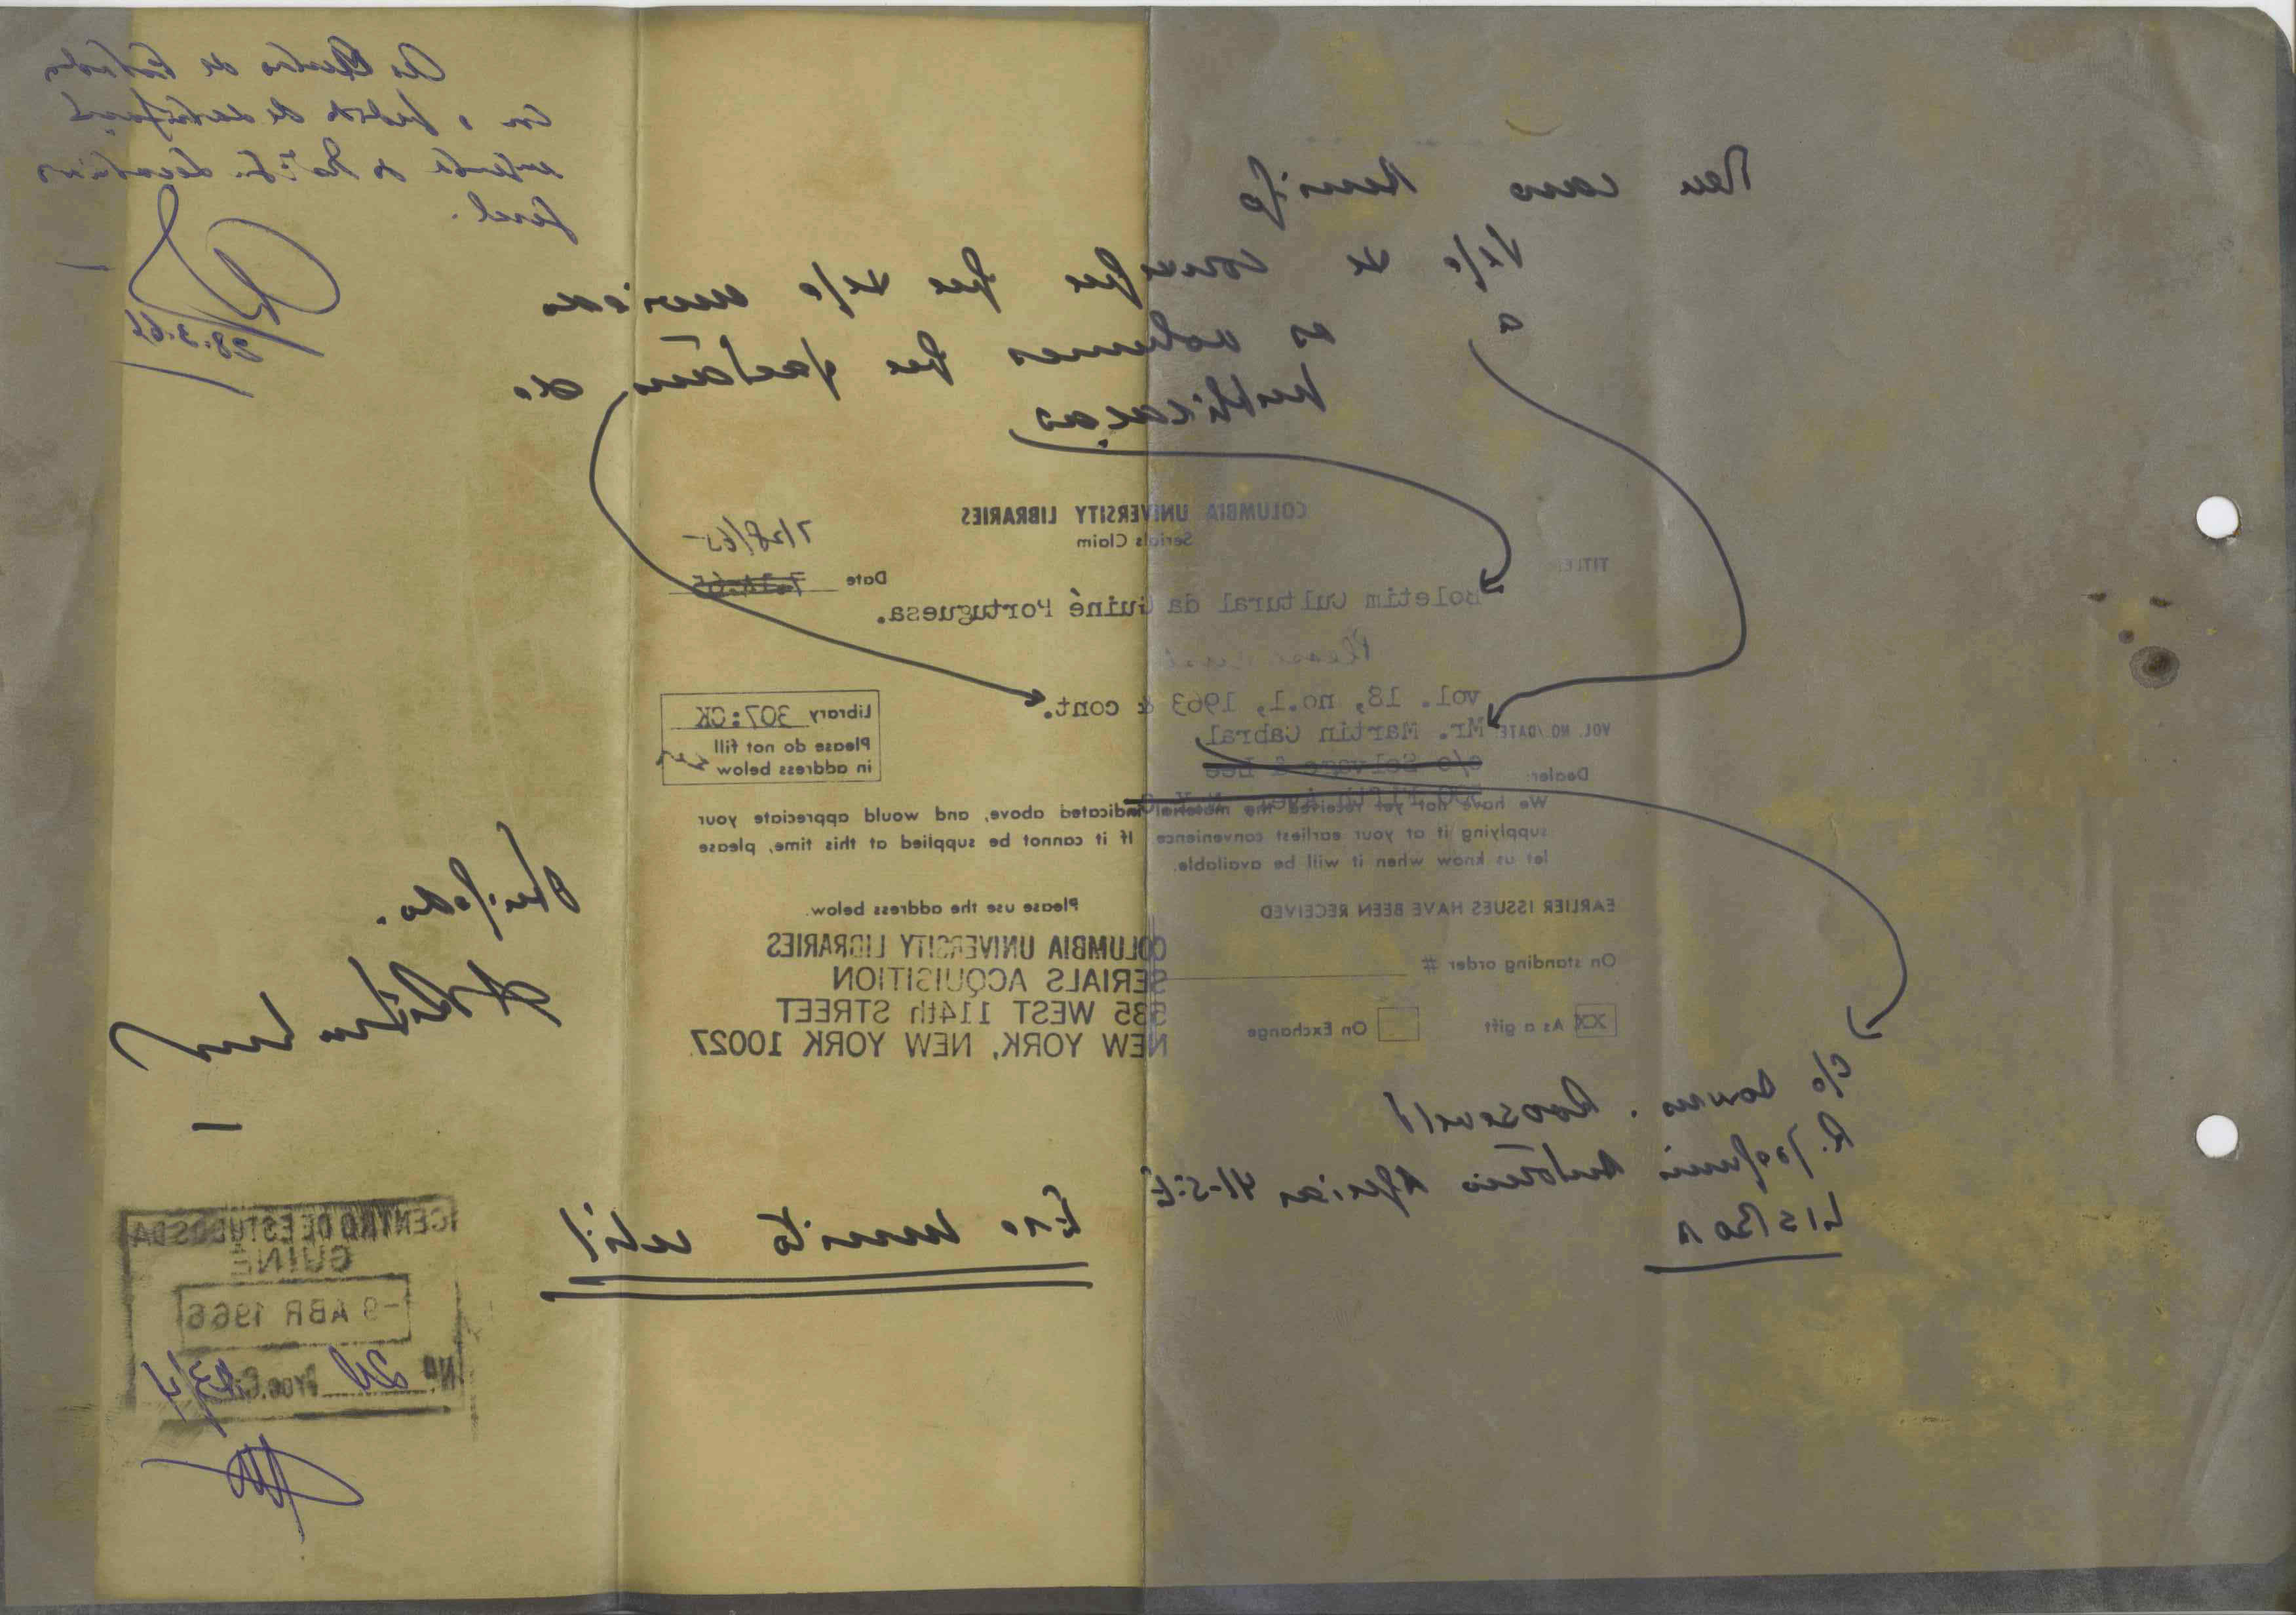 Meu caro Amigo
Veja se consegue que seja enviado
a
os volumes que faltam, da
publicação
COLUMBIA UNIVERSITY LIBRARIES
Serials Claim
7/28/65
TITLE:
Date
Boletim Cultural da Guiné Portuguesa.
Please
vol. 18, no.1, 1963 & cont.
Library 307:CK
VOL. NO/DATE
Mr. Martin Cabral
Please do not fill
in address below
Dealer:
c/o Selvage & Lee
We have not yet received the material indicated above, and would appreciate your
supplying it at your earliest convenience. If it cannot be supplied at this time, please
let us know when it will be available.
EARLIER ISSUES HAVE BEEN RECEIVED
Please use the address below.
On standing order #
COLUMBIA UNIVERSITY LIBRARIES
SERIALS ACQUISITION
535 WEST 114th STREET
NEW YORK, NEW YORK 10027
XX As a gift
On Exchange
c/o Soares. Roosevelt
R. Joaquim António Aguiar 41-5º E
LISBOA
Era muito util!
Obrigado.
Ao Centro de Estudos
com o pedido de
do
Geral.
28.3.66
CENTRO DE ESTUDOS DA
GUINÉ
-9 ABR 1966
Nº Proc.